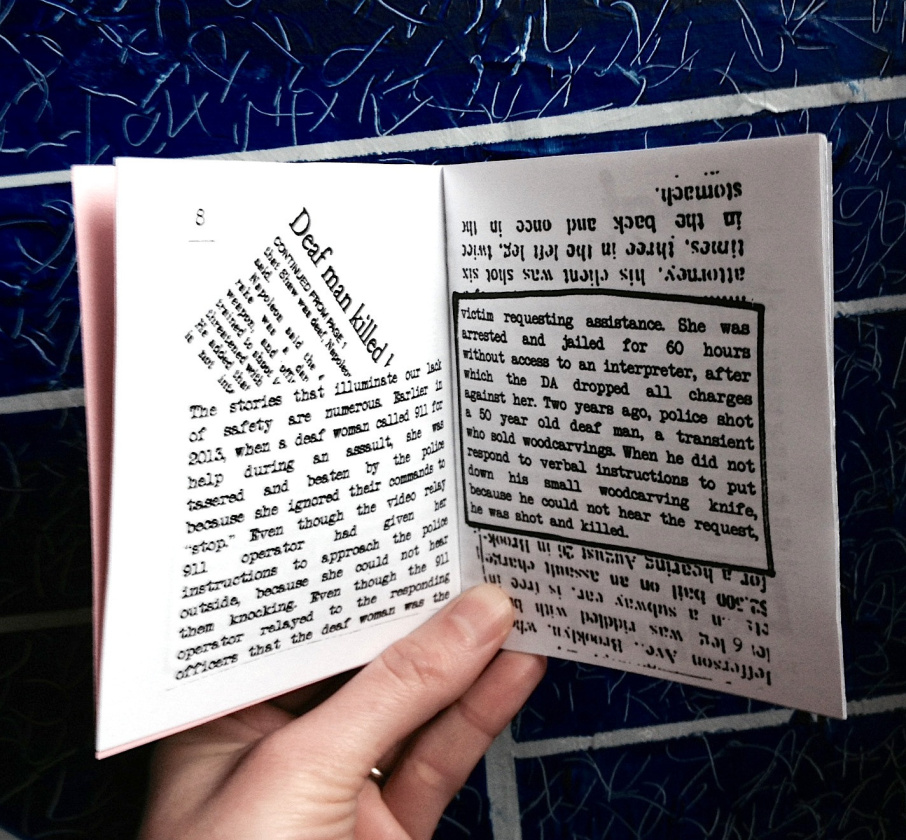 8
Deaf man killed
CONTINUED FROM PAGE 1
that Shaw was deaf, Napoleon
said.
Napoleon said the
rake was a dan
weapon, and offic
trained to shoot
threatened with
added that
not
The stories that illuminate our lack
of safety are numerous. Earlier in
2013, when a deaf woman called 911 for
help during an assault, she was
tasered and beaten by the police
because she ignored their commands to
"stop." Even though the video relay
911 operator had given her
instructions to approach the police
outside, because she could not hear
them knocking. Even though the 911
operator relayed to the responding
officers that the deaf woman was the
stomach.
in the back and once in th
times, three in the left leg, twice
attorney, his client was shot six
victim requesting assistance. She was
arrested and jailed for 60 hours
without access to an interpreter, after
which the DA dropped all charges
against her. Two years ago, police shot
a 50 year old deaf man, a transient
who sold woodcarvings. When he did not
respond to verbal instructions to put
down his small woodcarving knife,
because he could not hear the request,
he was shot and killed.
for a hearing August 26 in Brook-
$2,500 bail on an assault charge
a subway car, is free
was riddled with b
Jefferson Ave., Brooklyn,